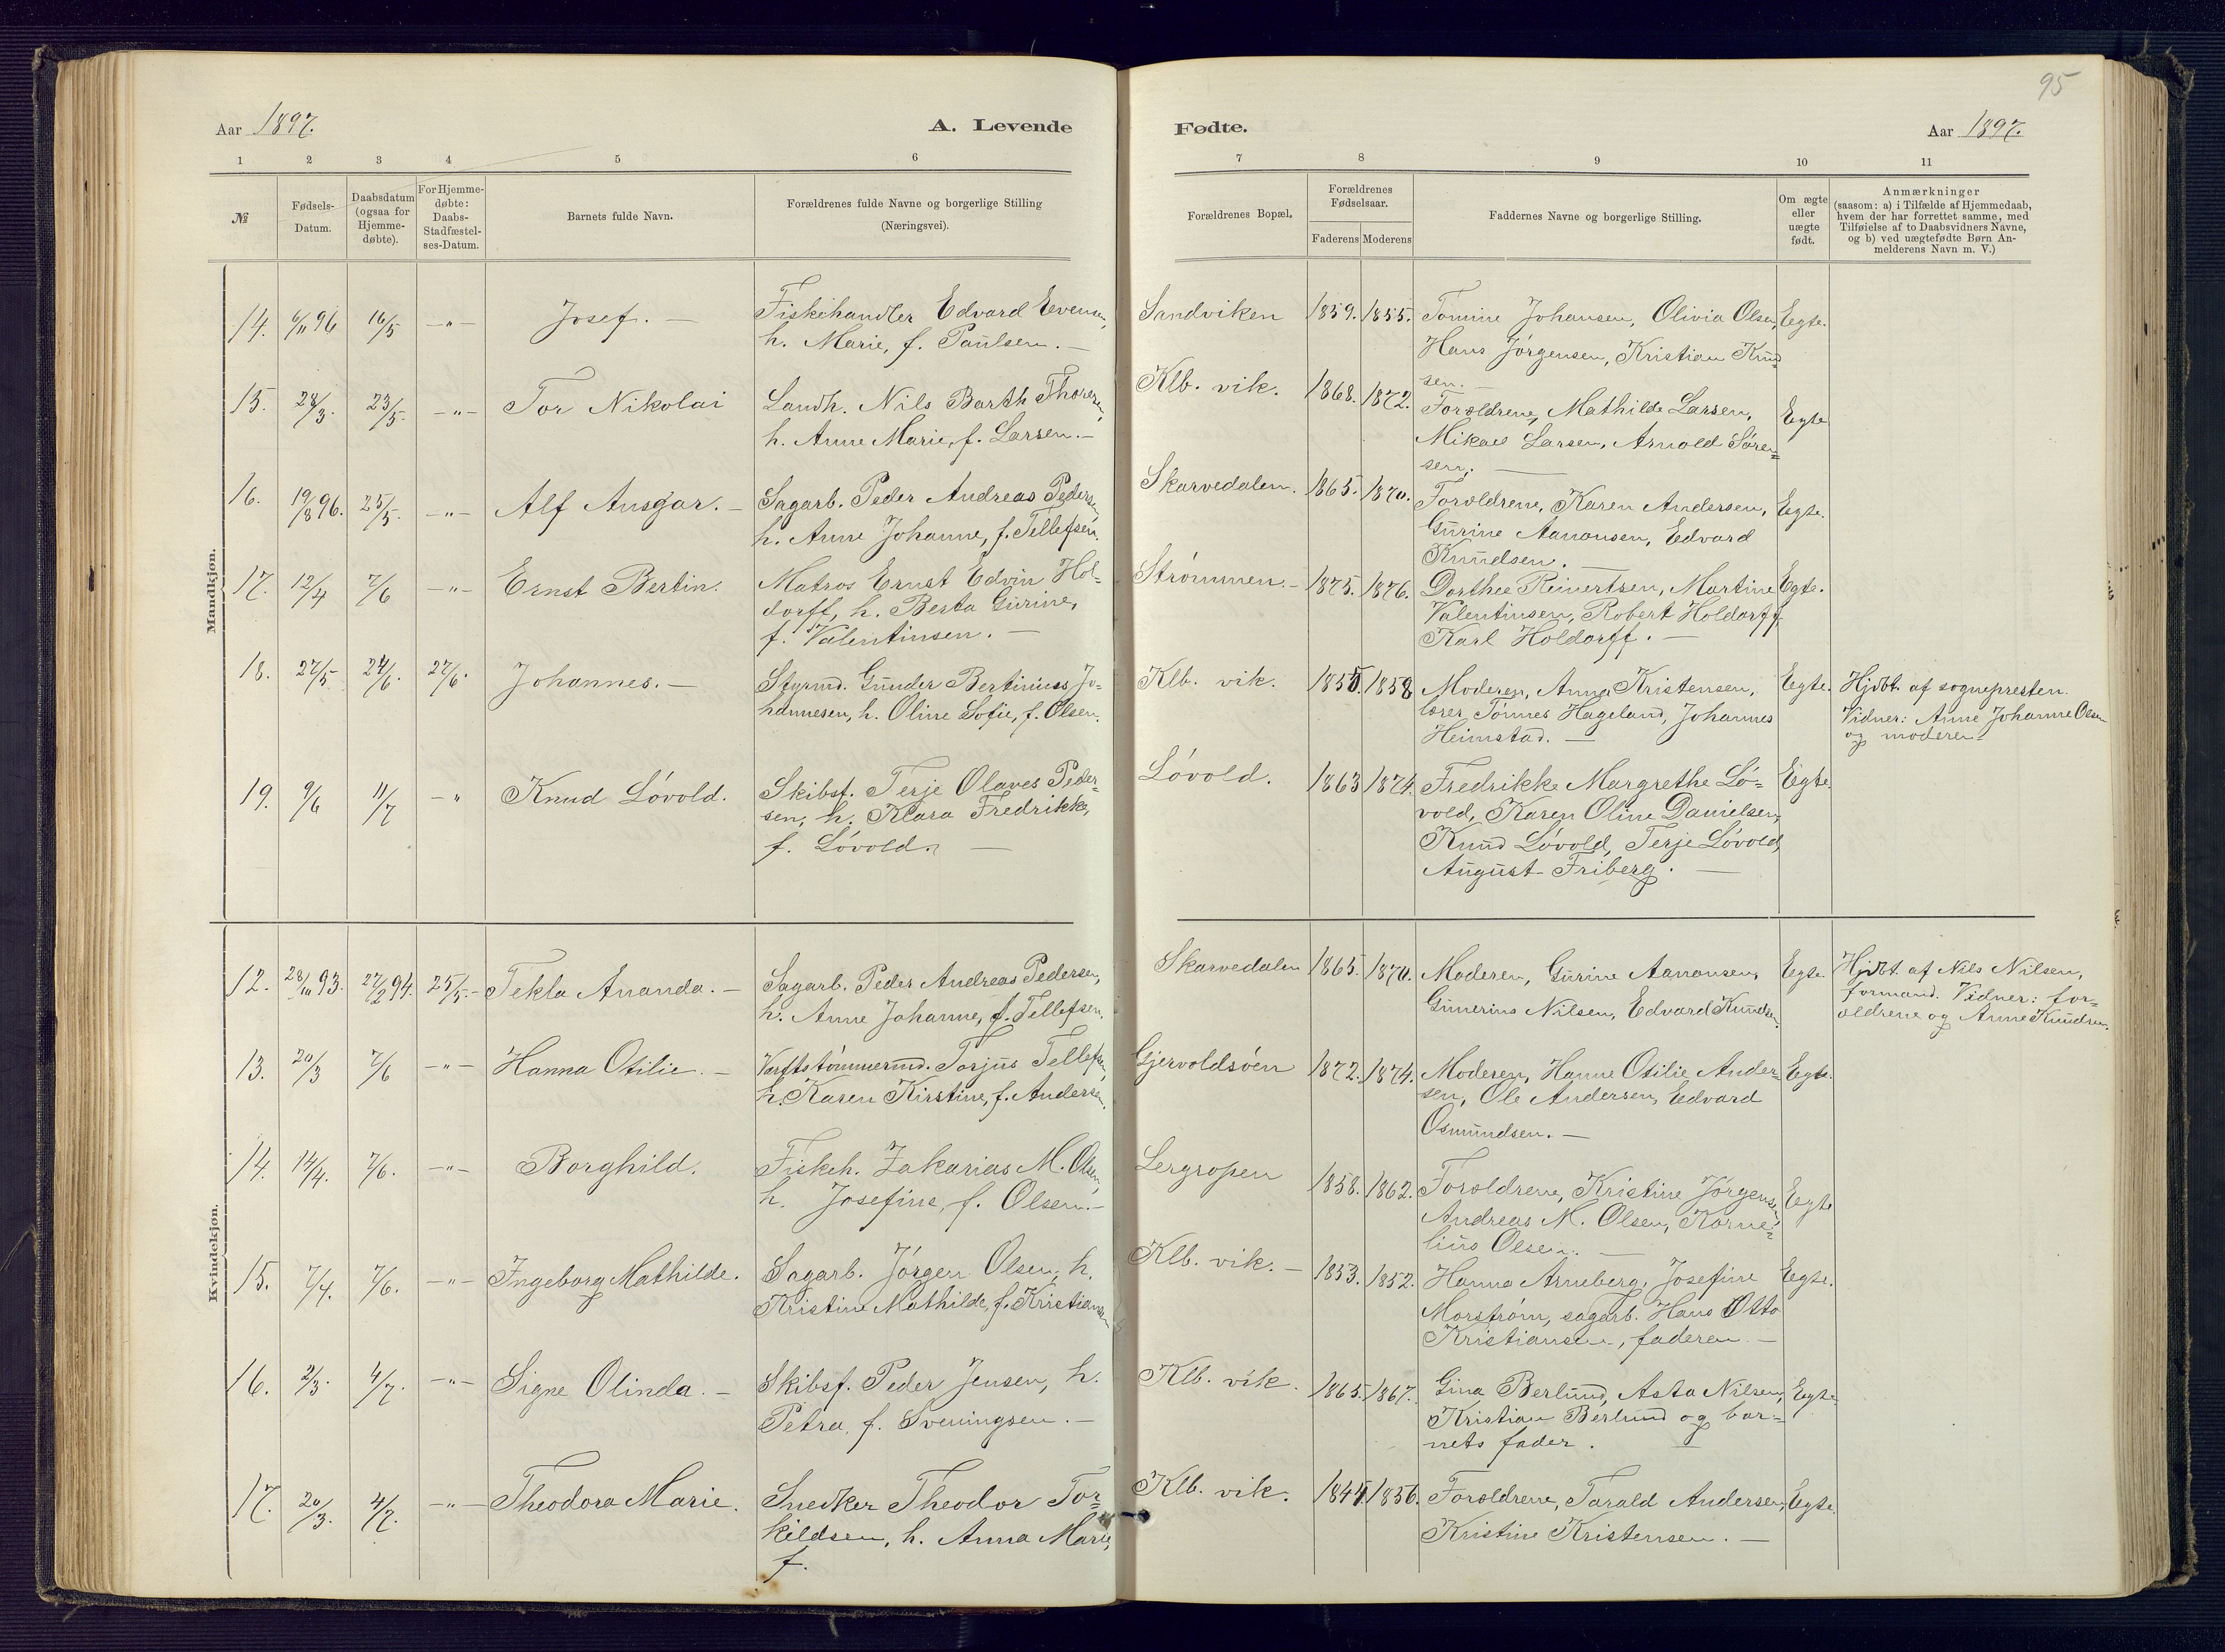 95
Aar 1897. A. Levende Fødte. Aar 1897.
1 2 3 4 5 6 7 8 9 10 11
№
Fødsels-
Datum.
Daabsdatum
(ogsaa for
Hjemme-
døbte).
For Hjemme-
døbte:
Daabs-
Stadfæstel-
ses-Datum.
Barnets fulde Navn.
Forældrenes fulde Navne og borgerlige Stilling
(Næringsvei).
Forældrenes Bopæl.
Forældrenes
Fødselsaar.
Faderens Moderens
Faddernes Navne og borgerlige Stilling.
Om ægte
eller
uægte
født.
Anmærkninger
(saasom: a) i Tilfælde af Hjemmedaab,
hvem der har forrettet samme, med
Tilføielse af to Daabsvidners Navne,
og b) ved uægtefødte Børn An-
melderens Navn m. V.)
Mandkjøn.
14. 6/11 96 16/5 -"- Josef. –
Fiskehandler Edvard Evensen,
h. Marie, f. Paulsen. –
Sandviken 1859. 1855.
Tomine Johansen, Olivia Olsen,
Hans Jørgensen, Kristian Knud
sen. –
Egte.
15. 28/3. 23/5. -"- Tor Nikolai
Landh. Nils Barth Thoresen,
h. Anne Marie, f. Larsen. –
Klb. vik. 1868. 1872.
Forældrene, Mathilde Larsen,
Mikael Larsen, Arnold Søren=
sen. –
Egte
16. 19/8 96. 25/5. -"- Alf Ansgar. –
Sagarb. Peder Andreas Pedersen,
h. Anne Johanne, f. Tellefsen.
Skarvedalen. 1865. 1870.
Forældrene, Karen Andersen,
Gurine Aanonsen, Edvard
Knudsen. –
Egte.
17. 12/4 7/6 -"- Ernst Bertin.
Matros Ernst Edvin Hol-
dorff, h. Berta Gurine,
f. Valentinsen. –
Strømmen. – 1875. 1876.
Dorthee Reinertsen, Martine
Valentinsen, Robert Holdorff,
Karl Holdorff. –
Egte.
18. 27/5 24/6. 27/6. Johannes. –
Styrmd. Gunder Bertinius Jo-
hannesen, h. Oline Sofie, f. Olsen.
Klb. vik. 1855. 1858
Moderen, Anna Kristensen,
lærer Tønnes Hageland, Johannes
Heimstad. –
Egte.
Hjdbt. af sognepresten.
Vidner: Anne Johanne Olsen
og moderen.
19. 9/6 11/7 -" Knud Løvold.
Skibsf. Terje Olaves Peder-
sen, h. Klara Fredrikke,
f. Løvold. –
Løvold. 1863 1874.
Fredrikke Margrethe Lø=
vold, Karen Oline Danielsen,
Knud Løvold, Terje Løvold,
August Friberg. –
Egte.
Kvindekjøn.
12. 28/10 93. 27/2 94. 25/5. Tekla Ananda. –
Sagarb. Peder Andreas Pedersen,
h. Anne Johanne, f. Tellefsen.
Skarvedalen 1865. 1870.
Moderen, Gurine Aanonsen,
Gunerius Nilsen, Edvard Knudsen.
Egte.
Hjdbt. af Nils Nilsen,
formand. Vidner: for=
ældrene og Anne Knudsen.
13. 20/3 7/6 -"- Hanna Otilie. –
Verftstømmermd. Torjus Tellefsen,
h. Karen Kirstine, f. Andersen.
Gjervoldsøen 1872. 1874.
Moderen, Hanne Otilie Ander=
sen, Ole Andersen, Edvard
Osmundsen. –
Egte.
14. 14/4. 7/6. -"- Borghild.
Fiskeh. Zakarias M. Olsen,
h. Josefine, f. Olsen. –
Lergropen 1858. 1862.
Forældrene, Kristine Jørgensen,
Andreas M. Olsen, Korne=
lius Olsen. –
Egte
15. 7/4. 7/6. -"- Ingeborg Mathilde.
Sagarb. Jørgen Olsen, h.
Kristine Mathilde, f. Kristiansen
Klb. vik. – 1853. 1852.
Hanna Arneberg, Josefine
Morstrøm, sagarb. Hans Otto
Kristiansen, faderen. –
Egte.
16. 2/3. 4/7. -"- Signe Olinda. –
Skibsf. Peder Jensen, h.
Petra, f. Sveningsen. –
Klb. vik. 1865. 1867.
Gina Berlund, Asta Nilsen,
Kristian Berlund og bar=
nets fader. –
Egte.
17. 20/3. 4/7. -"- Theodora Marie.
Snedker Theodor Tor=
kildsen, h. Anna Marie,
f.
Klb. vik. 1845. 1856.
Forældrene, Torald Andersen,
Kristine Kristensen. –
Egte.